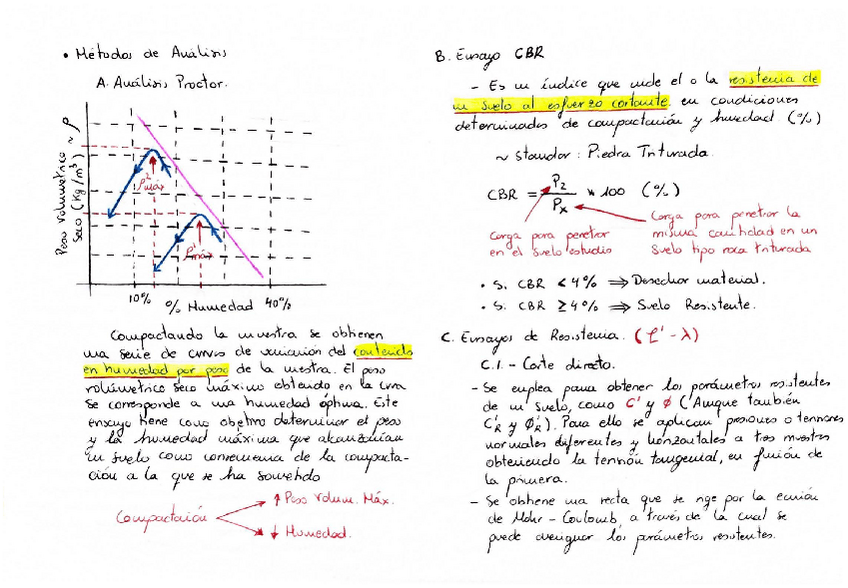 • Métodos de Análisis
A. Análisis Proctor.
Peso volumétrico ~ ρ
seco (kg/m³)
ρ²máx
ρ¹máx
10% % Humedad 40%
Compactando la muestra se obtienen
una serie de curvas de variación del contenido
en humedad por peso de la mestra. El peso
volúmetrico seco máximo obtenido en la curva
se corresponde a una humedad óptima. Este
ensayo tiene como objetivo determinar el peso
y la humedad máxima que alcanzarían
un suelo como consecuencia de la compacta-
ción a la que se ha sometido
Compactación
↑ Peso Volum. Máx.
↓ Humedad.
B. Ensayo CBR
- Es un índice que mide el o la resistencia de
un suelo al esfuerzo cortante, en condiciones
determinados de compactación y humedad (%)
~ Standar : Piedra Triturada.
CBR = P₂ / Pₓ * 100 (%)
Carga para penetrar
en el suelo estudio
Carga para penetrar la
misma cantidad en un
suelo tipo roca triturada
• Si CBR < 4% ⇒ Desechar material.
• Si CBR ≥ 4% ⇒ Suelo Resistente.
C. Ensayos de Resistencia.
C.1. - Corte directo.
- Se emplea para obtener los parámetros resistentes
de un suelo, como C' y ø (Aunque también
C'R y Ø'R). Para ello se aplican presiones o tensiones
normales diferentes y horizontales a tres muestras
obteniendo la tensión tangencial, en función de
la primera.
- Se obtiene una recta que se rige por la ecuación
de Mohr - Coulomb, a través de la cual se
puede averiguar los parámetros resistentes.